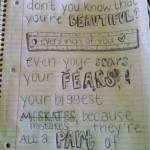 don't you know that
you're BEAUTIFUL?
every inch of you
even your scars,
your FEARS,
your biggest
mistakes, because
they're
ALL a PART of